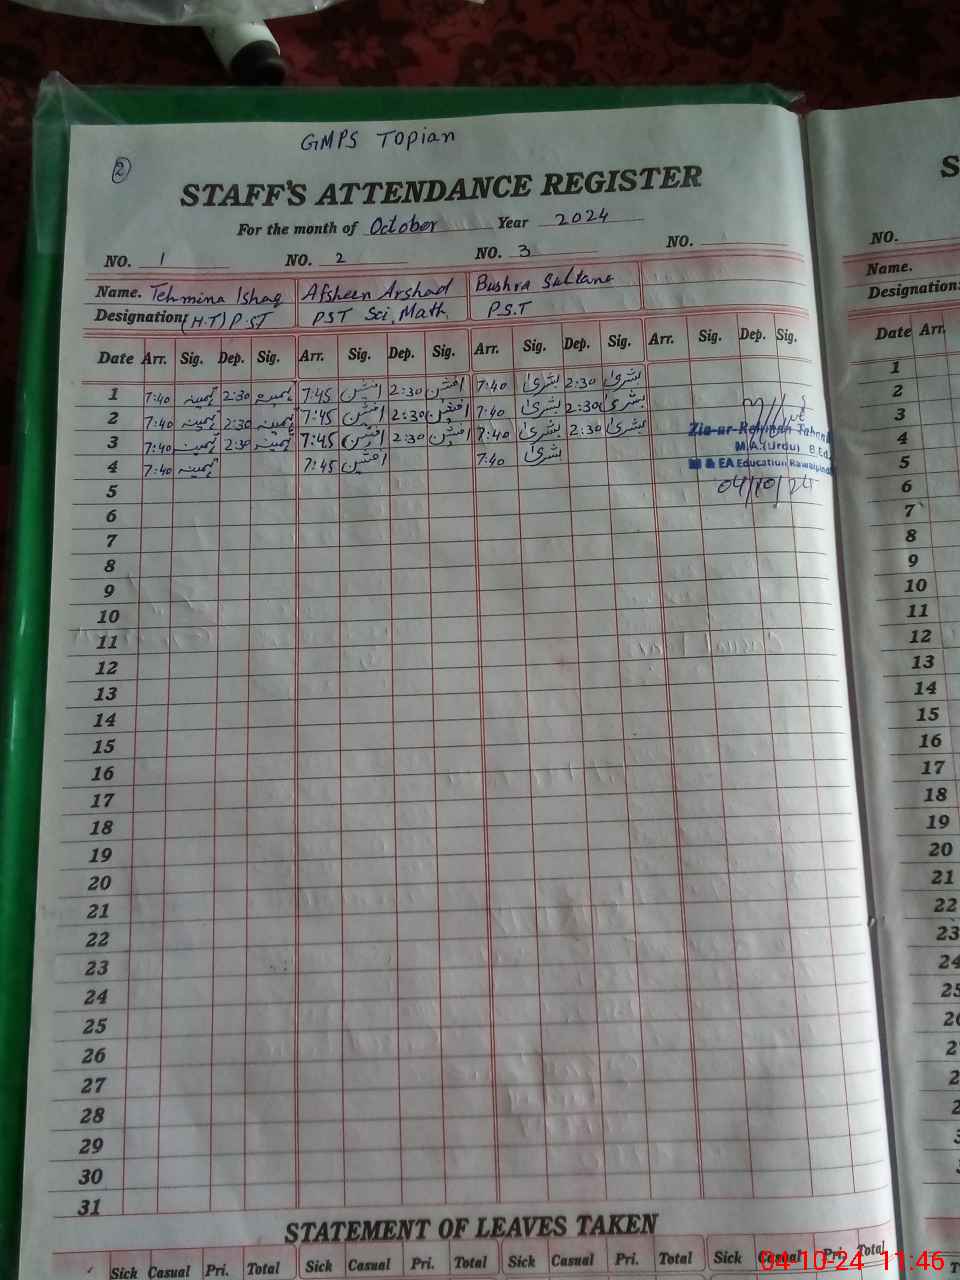 GMPS Topian
2
STAFF'S ATTENDANCE REGISTER
For the month of October Year 2024
NO. 1 NO. 2 NO. 3 NO.
Name. Tehmina Ishaq Afsheen Arshad Bushra Sultana
Designation (H.T) P.ST PST Sci Math P.S.T
Date Arr. Sig. Dep. Sig. Arr. Sig. Dep. Sig. Arr. Sig. Dep. Sig. Arr. Sig. Dep. Sig.
1 7:40 تہمینہ 2:30 تہمینہ 7:45 افشین 2:30 افشین 7:40 بشریٰ 2:30 بشریٰ
2 7:40 تہمینہ 2:30 تہمینہ 7:45 افشین 2:30 افشین 7:40 بشریٰ 2:30 بشریٰ
3 7:40 تہمینہ 2:30 تہمینہ 7:45 افشین 2:30 افشین 7:40 بشریٰ 2:30 بشریٰ
4 7:40 تہمینہ 7:45 افشین 7:40 بشریٰ
Zia-ur-Rehman
M.A.(Urdu) B.Ed
EA Education Rawalpindi
04/10/24
5
6
7
8
9
10
11
12
13
14
15
16
17
18
19
20
21
22
23
24
25
26
27
28
29
30
31
STATEMENT OF LEAVES TAKEN
Sick Casual Pri. Total Sick Casual Pri. Total Sick Casual Pri. Total Sick Casual Pri. Total
S
NO.
Name.
Designation:
Date Arr.
1
2
3
4
5
6
7
8
9
10
11
12
13
14
15
16
17
18
19
20
21
22
23
24
25
04-10-24 11:46